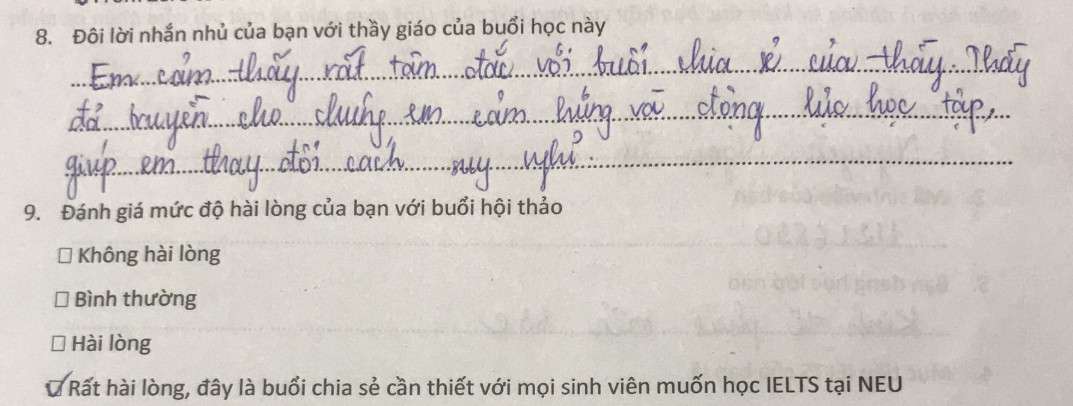 8. Đôi lời nhắn nhủ của bạn với thầy giáo của buổi học này
Em cảm thấy rất tâm đắc với buổi chia sẻ của thầy. Thầy
đã truyền cho chúng em cảm hứng và động lực học tập,
giúp em thay đổi cách suy nghĩ.
9. Đánh giá mức độ hài lòng của bạn với buổi hội thảo
□ Không hài lòng
□ Bình thường
□ Hài lòng
☑ Rất hài lòng, đây là buổi chia sẻ cần thiết với mọi sinh viên muốn học IELTS tại NEU